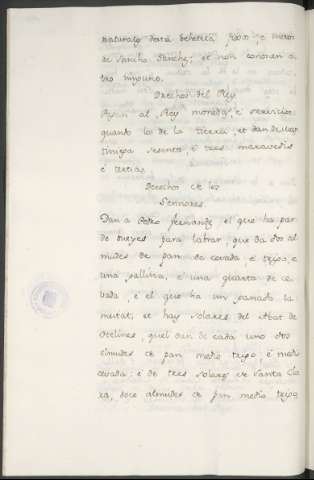 naturalg desta behetria foron, e fueron
de Sancho Sanchez, et non conoscen o-
tro ninguno.
Derechos del Rey
Pagan al Rey moneda, e servicios
quanto los de la tierra, et dan de Mar-
tiniega sesenta, e tres maravedis
e tercia
Derechos de los
Sennores
Dan a Pedro Fernandez el que ha par
de bueyes para labrar, que da dos al
mudes de pan de cevada e trigo, e
una gallina, e una quarta de ce-
vada, e el que ha un sennado la
meitat, et hay solares del Abat de
Otelines, quel dan de cada uno dos
almudes de pan medio trigo, e medio
cevada: e de tres solares de Santa Cla
ra, doce almudes de pan medio trigo